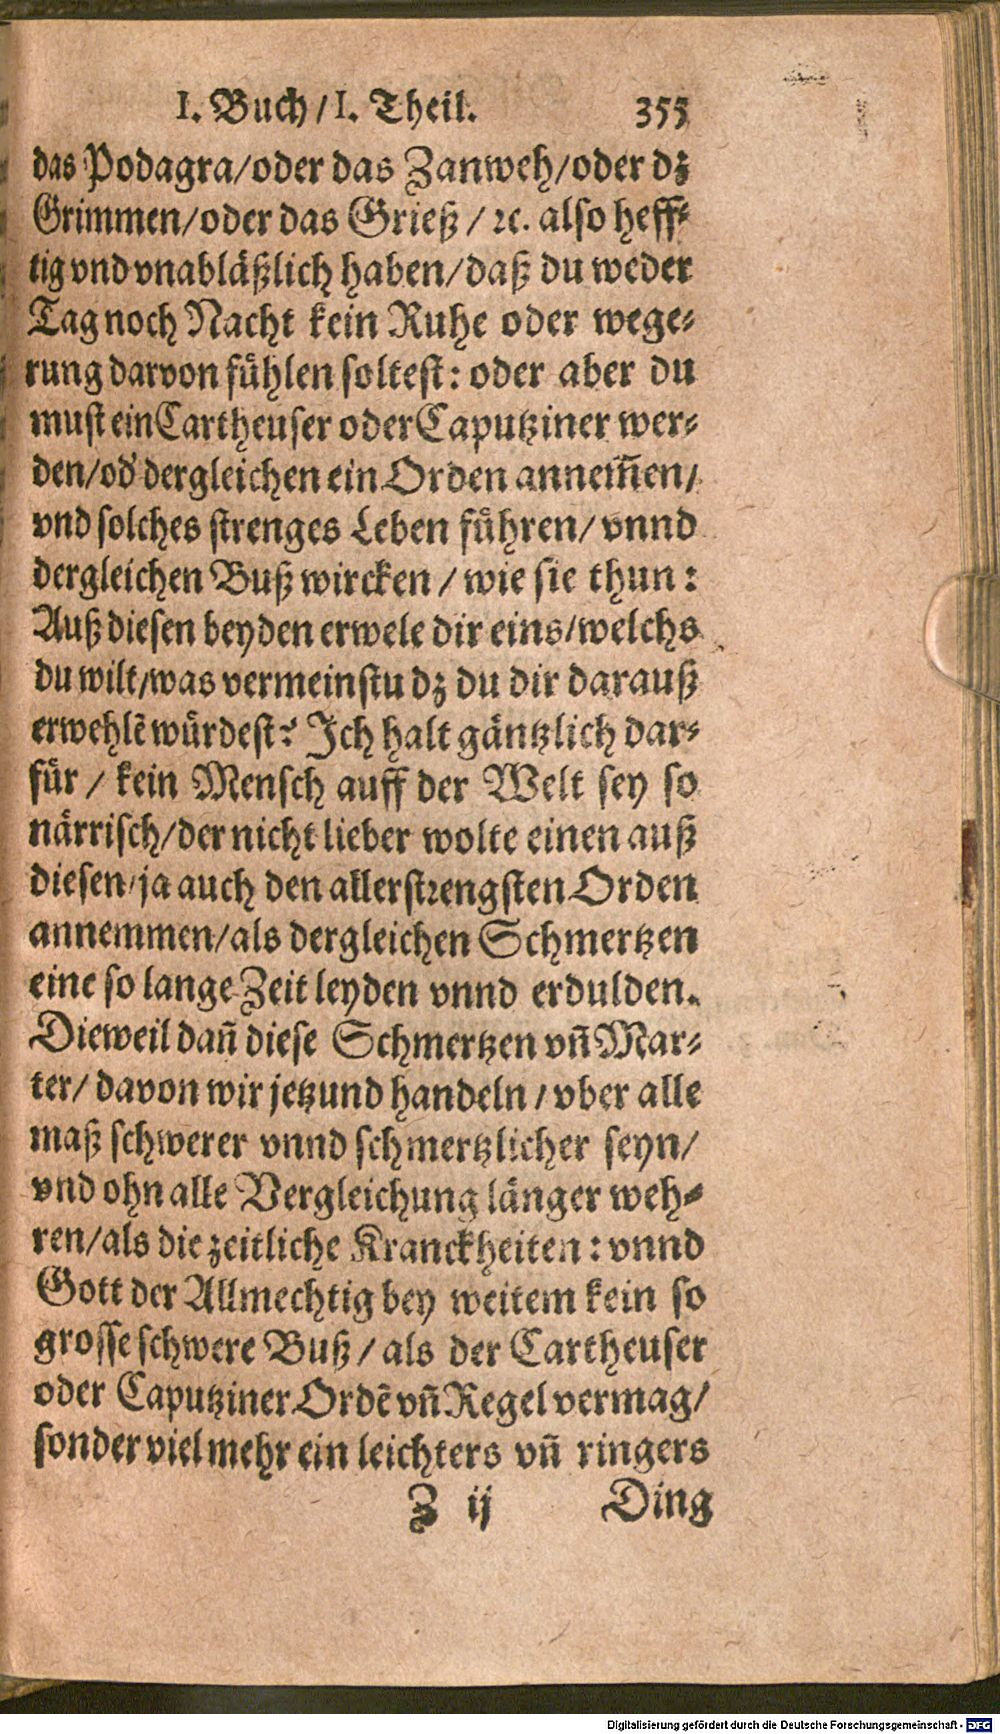 I. Buch / I. Theil. 355
das Podagra/oder das Zanweh/oder dz
Grimmen/oder das Grieß / ꝛc. also heff⸗
tig vnd vnabläßlich haben/daß du weder
Tag noch Nacht kein Ruhe oder wege⸗
rung darvon fühlen soltest: oder aber du
must ein Cartheuser oder Caputziner wer⸗
den/od' dergleichen ein Orden annem̃en/
vnd solches strenges Leben führen/ vnnd
dergleichen Buß wircken / wie sie thun:
Auß diesen beyden erwele dir eins/welchs
du wilt/was vermeinstu dz du dir darauß
erwehlẽ würdest? Ich halt gäntzlich dar⸗
für / kein Mensch auff der Welt sey so
närrisch/der nicht lieber wolte einen auß
diesen/ja auch den allerstrengsten Orden
annemmen/als dergleichen Schmertzen
eine so lange Zeit leyden vnnd erdulden.
Dieweil dañ diese Schmertzen vñ Mar⸗
ter/ davon wir jetzund handeln / vber alle
maß schwerer vnnd schmertzlicher seyn/
vnd ohn alle Vergleichung länger weh⸗
ren/als die zeitliche Kranckheiten: vnnd
Gott der Allmechtig bey weitem kein so
grosse schwere Buß / als der Cartheuser
oder Caputziner Ordẽ vñ Regel vermag/
sonder viel mehr ein leichters vñ ringers
Z ij Ding
Digitalisierung gefördert durch die Deutsche Forschungsgemeinschaft - DFG